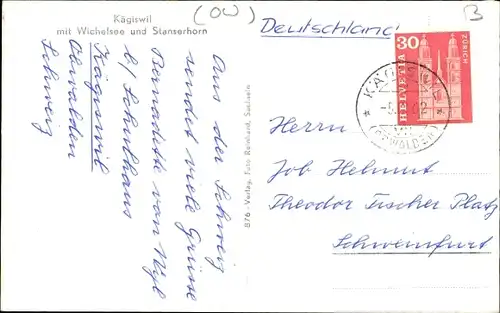 Kägiswil
mit Wichelsee und Stanserhorn
(OW)
Deutschland
B
Aus der Schweiz
sendet viele Grüsse
Bernadette von Wyl
b/ Schulhaus
Kägiswil
Obwalden
Schweiz
876 - Verlag, Foto Reinhard, Sachseln
30
HELVETIA
ZÜRICH
(OBWALDEN)
Herrn
Job Helmut
Theodor Fischer Platz
Schweinfurt